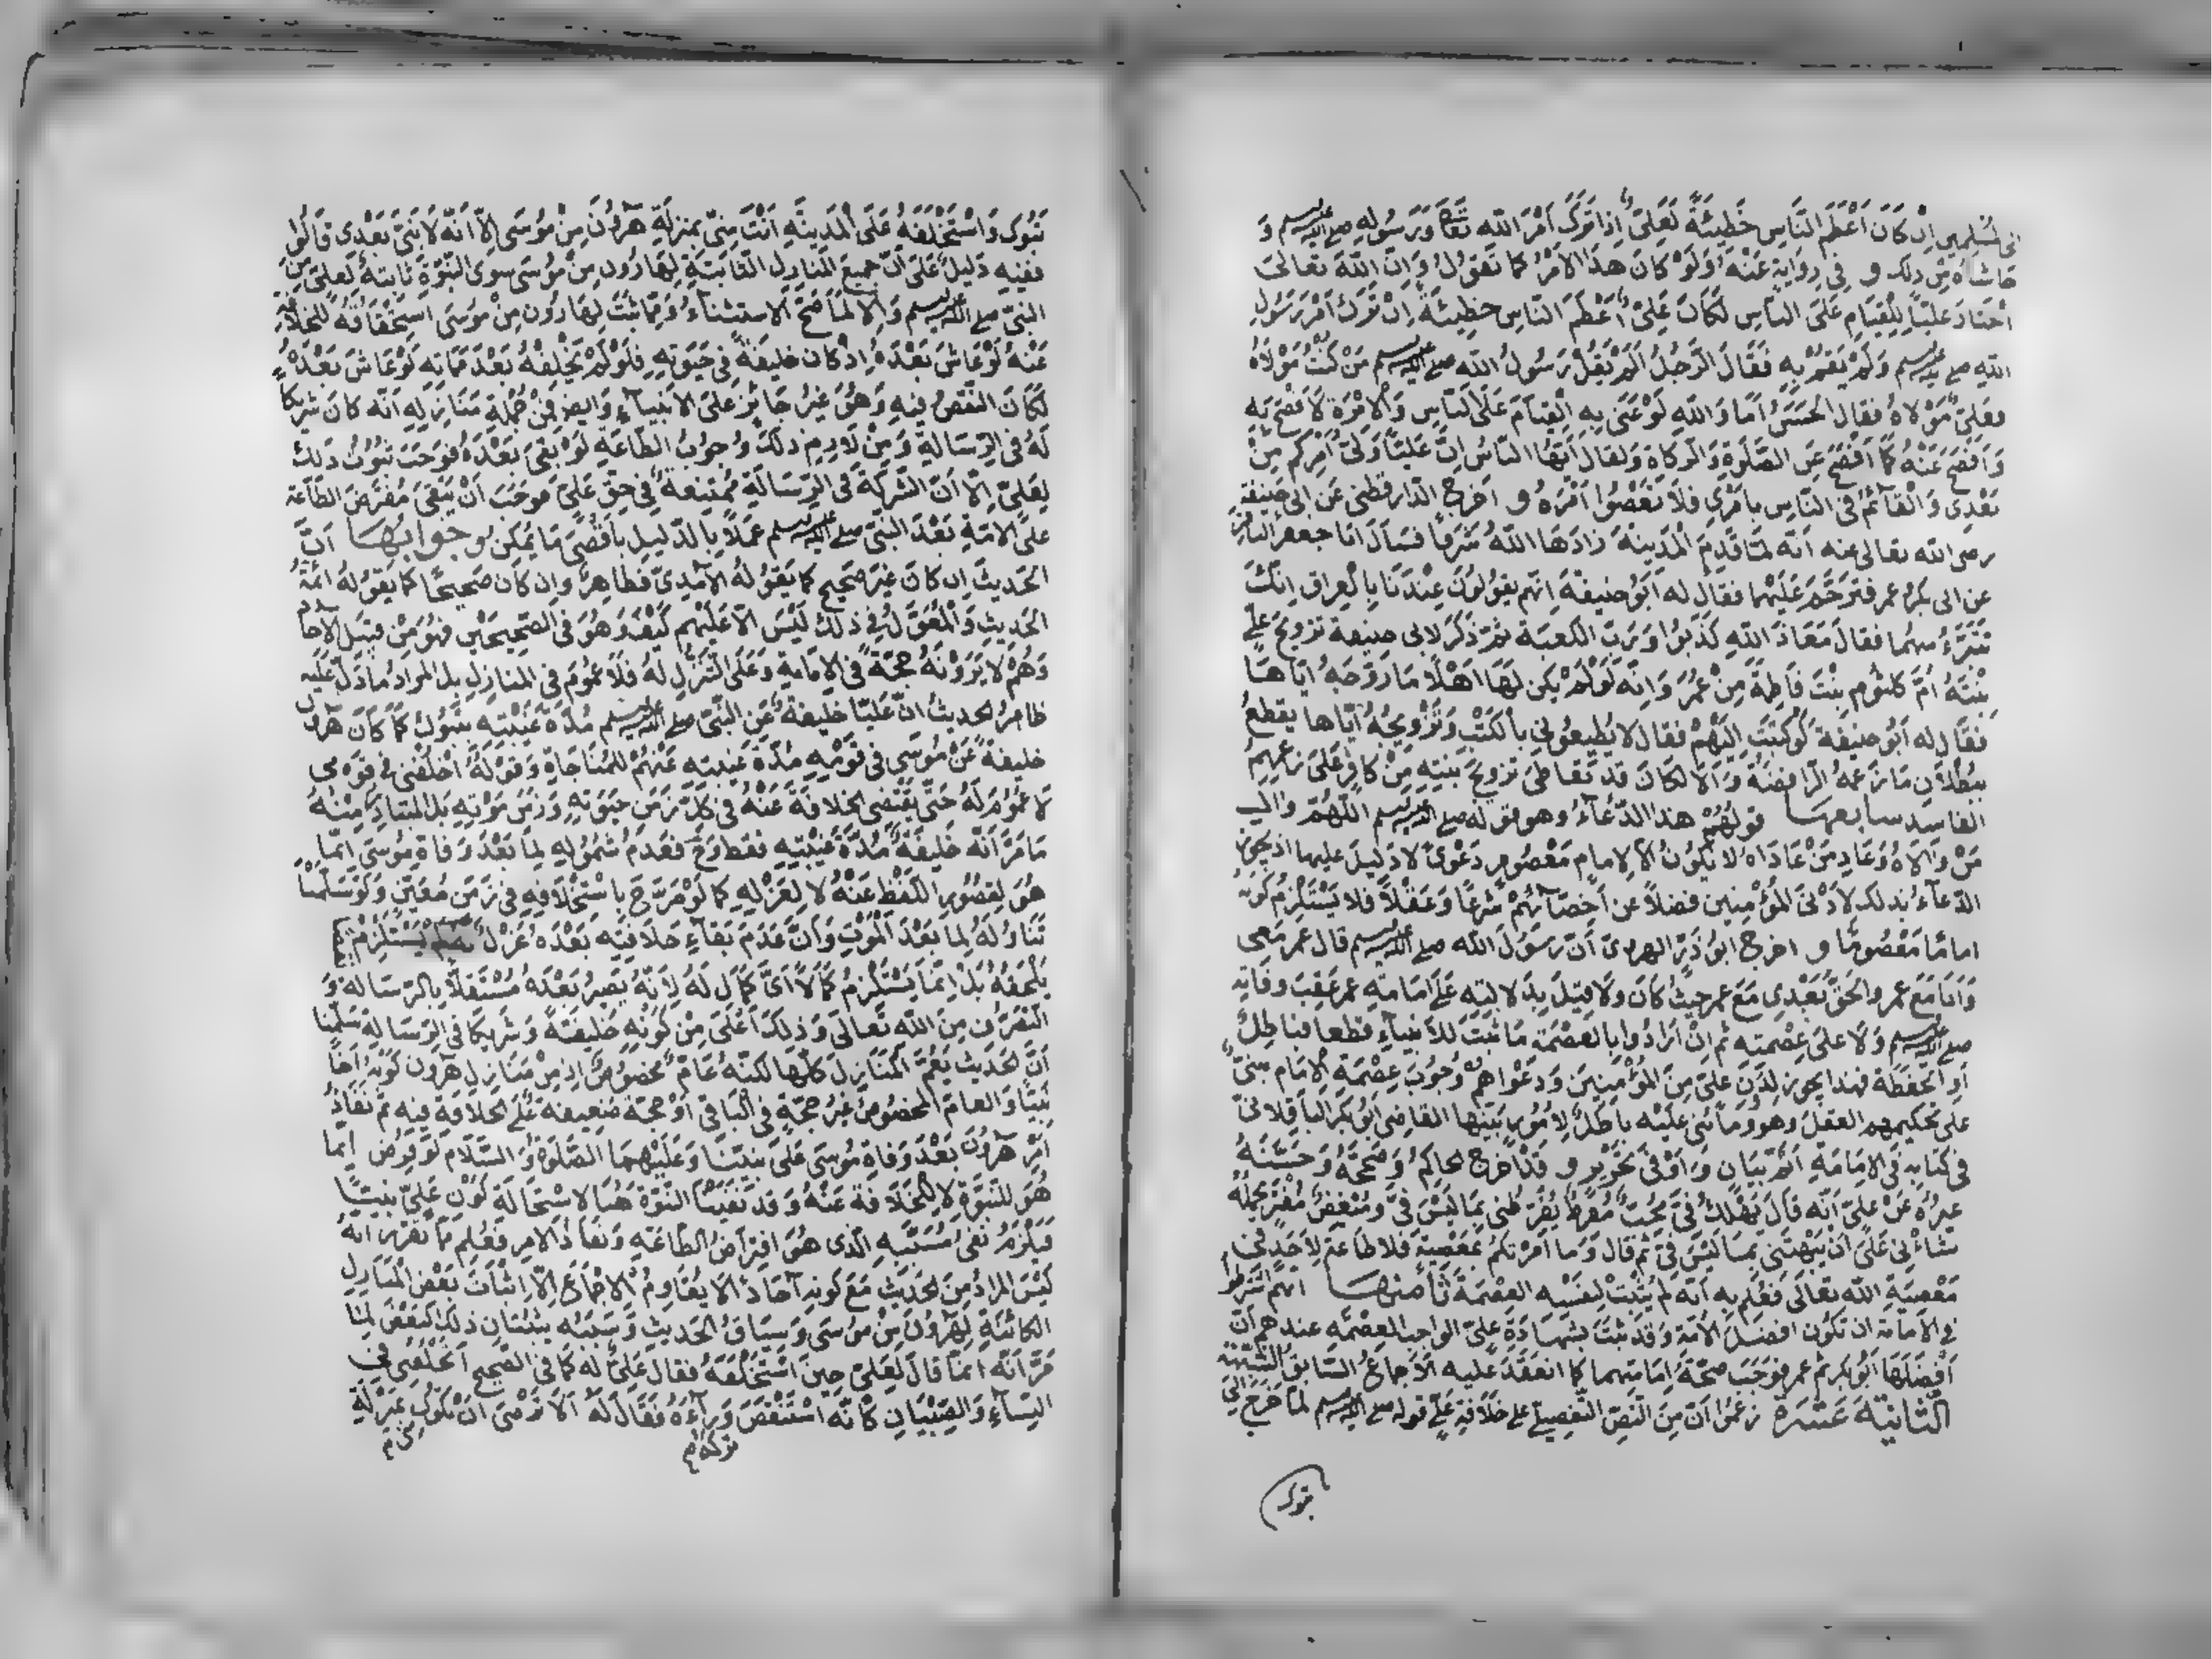 ان كَانَ اَعْظَمَ النَّاسِ خَطِيئَةً لَعَلِىٌّ اِذَا تَرَكَ اَمْرَ اللّٰه تَعَالى وَرَسُولِهِ صلى الله عليه وسلم وَ
حَاشَاهُ مِنْ ذلِكَ و فِى رِوَايةٍ عَنْهُ وَلَوْ كَانَ هذَا الاَمْرُ كما تَقولُ وَاِنَّ اللّٰهَ تعالىَ
اخْتَارَ عَلِيًّا لِلْقِيَامِ عَلَى النَّاسِ لَكَانَ عَلِىٌّ اَعْظَمَ النَّاسِ خطِيئَةً اِنْ تَرَكَ اَمْرَ رَسُولِ
اللّٰهِ صلى الله عليه وسلم وَلَمْ يَقُمْ بِهِ فَقَالَ الرَّجُلُ اَلَمْ يَقُلْ رَسُولُ اللّٰه صلى الله عليه وسلم مَنْ كُنْتُ مَوْلَاهُ
فعَلِىٌّ مَوْلاهُ فقال الحَسَنُ اَمَا وَاللّٰهِ لَوْ عَنَى بِهِ الْقِيَامَ عَلَى النَّاسِ وَالْاِمْرَةَ لَاَفْصَحَ بِهِ
وَاَفْصَحَ عَنْهُ كَمَا اَفْصَحَ عَنِ الصَّلٰوةِ وَالزكاة وَلقال اَيُّهَا النَّاسُ اِنَّ عَلِيًّا وَلِىُّ اَمْرِكم مِنْ
بَعْدِى وَالْقَائِمُ فى النَّاسِ بِاَمْرِى فلاَ تَعْصُوا اَمْرَهُ و اَخرجَ الدّارقطنى عَن ابى حَنيفَةَ
رضى اللّٰه تعالى عنه اَنّه لمَّا قَدِمَ الْمَدِينَةَ زَادَهَا اللّٰهُ شَرَفًا فسَأل اَبَا جعفر الباقر
عن ابى بكر و عمر فتَرَحَّمَ عَلَيْهِما فقال له اَبُو حنيفةَ اِنّهم يقولُونَ عِنْدَنَا بِالْعِراقِ اِنّكَ
تَتَبَرَّءُ مِنهما فقال مَعَاذَ اللّٰهِ كَذَبُوا وَرَبِّ الكَعبَة ثمّ ذَكَرَ لابى حنيفة تزويجَ عَلِىٍّ
بِنْتَهُ اُمَّ كلثوم بِنْتَ فَاطِمَةَ مِنْ عُمَرَ وَانّه لَوْ لَمْ يكن لَهَا اَهْلًا مَا زَوَّجَهُ اِيَّاهَا
فَقَال له اَبُو حنيفَةَ لَوْ كَتَبْتَ اِلَيْهِمْ فقال لا يُطِيعُونِى بِالْكَتْبِ وَتَزْويجُهُ اِيَّاها يقطعُ
بِبُطْلَانِ مَا زَعمهُ الرّافضةُ وَالّا لكَانَ قد تَعَاطى تزويجَ بنتِهِ مِنْ كافِرٍ عَلَى زعمِهِمِ
الفَاسِد سابعها قولُهُمْ هذا الدُّعَاءُ وهو قوله صلى الله عليه وسلم اللّٰهُمَّ وَالِ
مَنْ وَالَاهُ وَعَادِ مَنْ عَادَاه لا يَكُونُ اِلّا لاِمام مَعْصُومٍ دَعْوىً لا دَليلَ عليها اذ يجوز
الدّعَاءُ بذلك لاَدْنَى الْمُؤْمِنينِ فضلًا عن اَخِصَّائِهُمْ شَرْعًا وَعَقْلًا فلا يَسْتَلْزِمُ كَونَهُ
امامًا مَعْصُومًا و اخرجَ ابُوذَرّ الهروىّ اَنَّ رَسُولَ اللّٰه صلى الله عليه وسلم قال عمر مَعِى
وَاَنَا مَعَ عمر والحَقُّ بَعْدِى مَعَ عمر حيثُ كَانَ ولا قِيلَ بِدَلَالَتِهِ عَلَى اِمَامَةِ عمر عَقِبَ وفاته
صلى الله عليه وسلم وَلَا على عِصْمَتِهِ ثم اِنْ اَرَادُوا بِالعصْمَة مَا ثبتَ للاَنبياءِ قطعا فباطِلٌ
اَوِ الْحِفْظَ فهذا يجوز لِدُونِ عَلِىٍّ مِنَ المُؤْمِنينَ وَدعْواهم وُجُوبَ عِصْمَةِ الْاِمَام مبنىٌّ
على تحكيمهم العقلَ وهو وَمَا بُنِىَ عَلَيْه باطلٌ لِاُمُورٍ بَيَّنها القاضى ابُو بكر الباقلانىّ
فى كتابِهِ فى الاِمَامَةِ اَتَمَّ بَيَانٍ وَاَوْفَىَ تَحْرِيْرٍ و قدْ اخرج الحاكِمُ وَصَحَّحَهُ وَحَسَّنَهُ
غيرُهُ عَنْ عَلِىّ اَنّه قَالَ يَهْلِكُ فِىَّ مُحِبٌّ مُفْرِطٌ يُقَرِّظُنى بِمَا لَيْسَ فِىَّ وَمُبْغِضٌ مُفْتَرٍ يَحْمِلُهُ
شَنَآنِى عَلَى اَنْ يَبْهَتَنى بِمَا لَيْسَ فِىَّ ثمّ قال وَمَا اَمَرْتُكُمْ بِمَعْصِيَةٍ فلا طاعَةَ لِاَحَدٍ فى
مَعْصِيَةِ اللّٰه تَعَالَى فعُلِمَ بِه اَنّه لَمْ يُثْبِتْ لِنفسِه العِصْمَةَ ثامنها انهم اشترطوا
فى الاِمَامَة ان تكون افضلَ الاُمّة وَقَدْ ثبَتَ بِشَهَادَةِ عَلِىّ الواجب العِصْمَةِ عندهم انّ
اَفضلَهَا اَبُو بكر ثم عمر فوجَبَ صِحّةُ اِمَامَتِهما كما انعَقَدَ عليه الاِجماعُ السّابقُ
الثّانيَةَ عَشَرَة زَعَمُوا انّ مِنَ النَّصّ التّفصِيلى على خلافةِ عَلِىٍّ قوله صلى الله عليه وسلم لمّا خرجَ اِلَى
تبوك
تَبُوكَ وَاسْتَخْلَفَهُ عَلَى الْمَدِينَةِ اَنْتَ مِنّى بِمنزِلَةِ هٰرُونَ مِنْ مُوسَى اِلّا اَنّهُ لَا نَبِىَّ بَعْدِى قَالُوا
ففيهِ دَليلٌ عَلَى اَنّ جميعَ المنَازِل الثّابتَةِ لِهَارُون مِنْ مُوسَى سِوَى النُّبُوَّةِ ثابتةٌ لعَلِىٍّ مِنَ
النبىّ صلى الله عليه وسلم وَاِلّا لمَا صَحَّ الاستثنَاءُ وَمِمّا ثبَتَ لِهَارُون مِنْ مُوسَى اسْتِحْقَاقُهُ لِلخلافَةِ
عَنْهُ لَوْ عَاشَ بَعْدَهُ اِذْ كَان خليفَةً فى حَيٰوتِهِ فلَوْ لَمْ يَخْلِفْهُ بَعْدَ مَماتِهِ لَوْ عَاشَ بَعْدَهُ
لَكَانَ النّقصُ فيهِ وَهُوَ غَيْرُ جَائزٍ عَلى الاَنبيآء وَايضًا فمِنْ جُمْلَةِ مَنَازِلِهِ اَنّه كانَ شَرِيكًا
لَهُ فى الرِّسَالة وَمِنْ لَازِمِ ذلِكَ وُجُوبُ الطّاعَةِ لَوْ بَقِىَ بَعْدَهُ فوجَبَ ثبُوتُ ذلِكَ
لِعَلِىٍّ اِلّا اَنَّ الشَّركَةَ فى الرّسَالَةِ مُمتَنِعَةٌ فِى حَقِّ عَلِىٍّ فوجَبَ اَنْ يَبْقَىَ مُفْتَرَضَ الطّاعَة
على الاُمّةِ بَعْدَ النبّى صلى الله عليه وسلم عَمَلًا بِالدّليلِ بِاَقْصَى مَا يُمكِن و جوابها اَنَّ
الحَدِيثَ اِن كَانَ غَيْرَ صَحِيحٍ كما يَقولُهُ الآمِدِىّ فظَاهِرٌ وان كان صَحِيحًا كما يَقولُهُ ائمّةُ
الحَدِيثِ وَالْمُعَوَّلُ فِى ذلكَ لَيْسَ الّا عَلَيْهِم كَيْفَ وَهُوَ فى الصَّحِيحَيْنِ فهُوَ مِنْ قبيل الآحاد
وَهُمْ لا يَرَوْنَهُ حُجّةً فى الاِمَامَةِ وَعَلَى التّنَزُّل لَهُ فلَا عُمُومَ فى المنازِل بل المُرَادُ مَا دَلَّ عَلَيه
ظاهرُ الحديث انّ عَلِيّا خليفةٌ عَن النّبّى صلى الله عليه وسلم مُدَّةَ غَيْبَتِه بتَبُوكَ كمَا كَانَ هرون
خليفةً عَنْ مُوسَى فى قَوْمِهِ مُدّةَ غَيْبَتِهِ عَنْهُمْ لِلْمُنَاجَاةِ وَقولُهُ اخلُفْنى فى قَوْمِى
لَا عُمُومَ لَهُ حَتَّى يَقْتَضى الخلافَةَ عَنْهُ فى كلّ زمَنَ حَيٰوتِهِ وَزَمَنَ مَوْتِهِ بَلِ المتبَادِرُ مِنْهُ
مَا مَرَّ اَنّه خَليفَةٌ مُدَّةَ غَيْبَتِهِ فقط وَحِ فعَدَمُ شُمُولِهِ لِمَا بَعْدَ وَفاةِ مُوسَى اِنّما
هُوَ لِقصُورِ اللَّفْظِ عَنْهُ لا لِعَزْلِهِ كما لَوْ صَرَّحَ بِاسْتِخْلَافِهِ فى زَمَنٍ مُعَيَّنٍ وَلَوْ سَلَّمْنَا
تَنَاوُلَهُ لِمَا بَعْدَ الْمَوْتِ وَاَنَّ عَدَمَ بَقَاءِ خِلَافَتِه بَعْدَهُ عَزْلٌ لَهُ لمْ يَسْتَلْزِمْ
يَلْحَقُهُ بَلْ اِنّمَا يَسْتَلْزِمُ كَمَالًا اَىَّ كَمَالٍ لَهُ لِاَنّهُ يَصِيرُ بَعْدَهُ مُسْتَقِلًّا بِالرّسَالة وَ
التَّصَرُّفِ مِنَ اللّٰه تَعَالَى وَذلِكَ اَعْلَىَ مِنْ كَوْنِهِ خَلِيفَتَهُ وَشَرِيكًا فى الرّسَالَةِ سَلّمنا
اَنّ الحَدِيث يَعُمّ الْمَنَازِلَ كلّهَا لكنّهُ عَامٌّ مخصُوصٌ اذ مِنْ مَنَازِل هرُون كَوْنُهُ اَخًا
نَبِيًّا وَالعامّ المخصُوصُ غَيْرُ حُجَّةٍ فى البَاقى اَوْ حُجّة ضعِيفة عَلَى الخلافِ فيه ثمّ نَفَاذُ
اَمْرِ هٰرُونَ بَعْدَ وَفاةِ مُوسَى عَلَى نبيّنَا وَعَلَيْهِمَا الصَّلٰوةُ وَالسَّلَام لَوْ فُرِضَ اِنّما
هُوَ لِلنّبُوَّةِ لا لِلْخِلَافةِ عَنْهُ وَقَدْ نفَيْنَا النّبُوّةَ هُنَا لاسْتِحَالَة كَوْنِ عَلِىّ نبِيًّا
فيَلْزَمُ نَفْىُ مُسَبَّبِهِ الّذى هُوَ افتِرَاضُ الطَّاعَةِ وَنفَاذُ الاَمرِ فعُلِمَ مِمّا تَقَرَّر انّه
لَيْسَ المرادُ مِنَ الحَدِيثِ مَعَ كَونِهِ آحَادًا لَا يُقاوِمُ الاجْمَاعَ اِلّا اِثْبَاتُ بَعْضِ الْمنَازِلِ
الكائنَةِ لِهٰرُونَ مِنْ مُوسَى وَسِيَاقُ الحَدِيثِ وَسَبَبُه يبيّنان ذلِكَ البَعْضَ لِمَا
مَرَّ اَنّه اِنّمَا قَالَهُ لعَلِىٍّ حِينَ اسْتَخْلَفَهُ فقال عَلِىٌّ له كَمَا فى الصَّحيح اَتخْلِفُنِى فى
النِّسَآءِ وَالصِّبْيَانِ كاَنّه اسْتَنْقَصَ تركه وَرَآءَهُ فَقَالَ لَهُ اَلَا تَرْضىَ اَنْ تكونَ بمَنْزِلَةِ